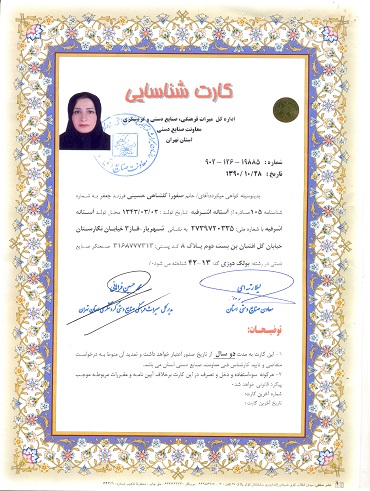 کارت شناسایی
اداره کل میراث فرهنگی، صنایع دستی و گردشگری
معاونت صنایع دستی
استان تهران
شماره : ۱۹۸۸۵-۱۲۶-۹۰۲
تاریخ : ۱۳۹۰/۱۰/۲۸
بدینوسیله گواهی میگردد آقای/ خانم صفورا گلشاهی حسینی فرزند جعفر به شماره
شناسنامه ۱۰۵ صادره از آستانه اشرفیه تاریخ تولد : ۱۳۴۳/۰۳/۰۲ محل تولد آستانه
اشرفیه با شماره ملی: ۲۷۳۹۷۲۰۳۳۵ به نشانی شهریار-فاز۳ خیابان نگارستان
خیابان گل افشان بن بست دوم پلاک ۸ کد پستی: ۳۱۶۸۷۷۷۳۱۳ صنعتگر صنایع
دستی در رشته: پولک دوزی کد: ۱۳-۴۲ شناخته می شود./
معاون صنایع دستی استان
مدیرکل میراث فرهنگی صنایع دستی و گردشگری استان تهران
توضیحات:
۱- این کارت به مدت دو سال از تاریخ صدور اعتبار خواهد داشت و تمدید آن منوط به درخواست
متقاضی و تایید کارشناس فنی معاونت صنایع دستی استان می باشد.
۲- هرگونه سوءاستفاده و دخل و تصرف در این کارت برخلاف آیین نامه و مقررات مربوطه موجب
پیگرد قانونی خواهد شد.
شماره آخرین کارت:
تاریخ آخرین کارت: